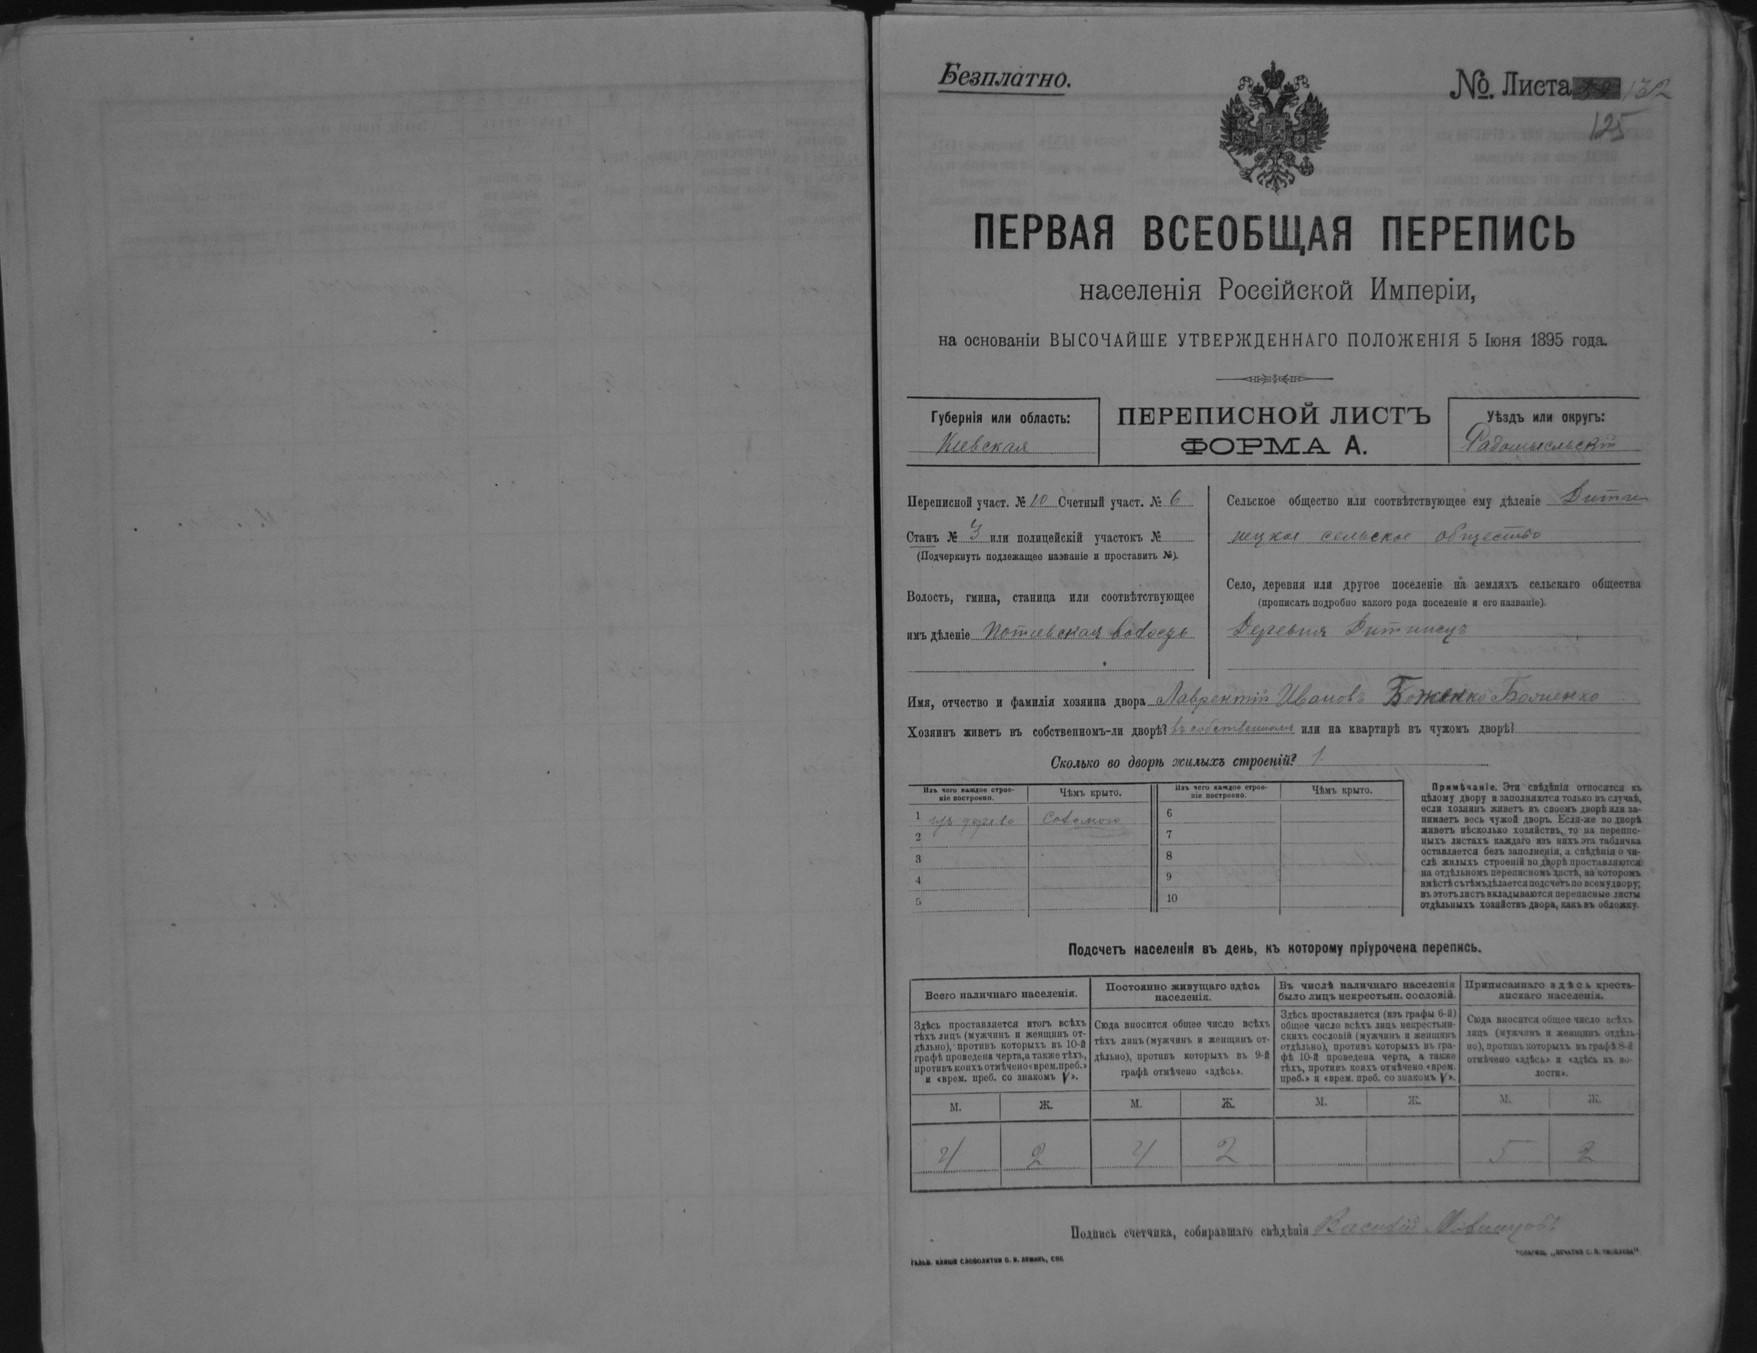 Безплатно.
№. Листа 132
125
ПЕРВАЯ ВСЕОБЩАЯ ПЕРЕПИСЬ
населенія Россійской Имперіи,
на основаніи ВЫСОЧАЙШЕ УТВЕРЖДЕННАГО ПОЛОЖЕНІЯ 5 Іюня 1895 года.
Губернія или область:
Кіевская
ПЕРЕПИСНОЙ ЛИСТЪ
ФОРМА А.
Уѣздъ или округъ:
Радомысльскій
Переписной участ. № 10 Счетный участ. № 6
Станъ № 3 или полицейскій участокъ №
(Подчеркнуть подлежащее названіе и проставить №).
Волость, гмина, станица или соотвѣтствующее
имъ дѣленіе Потіевская волость
Сельское общество или соотвѣтствующее ему дѣленіе
сельское общество
Село, деревня или другое поселеніе на земляхъ сельскаго общества
(прописать подробно какого рода поселеніе и его названіе).
Деревня
Имя, отчество и фамилія хозяина двора Лаврентій Ивановъ Боженко
Хозяинъ живетъ въ собственномъ-ли дворѣ? въ собственномъ или на квартирѣ въ чужомъ дворѣ?
Сколько во дворѣ жилыхъ строеній? 1
Изъ чего каждое строе-
ніе построено.
Чѣмъ крыто.
Изъ чего каждое строе-
ніе построено.
Чѣмъ крыто.
1 изъ дерева соломою
2
3
4
5
6
7
8
9
10
Примѣчаніе. Эти свѣдѣнія относятся къ
цѣлому двору и заполняются только въ случаѣ,
если хозяинъ живетъ въ своемъ дворѣ или за-
нимаетъ весь чужой дворъ. Если-же во дворѣ
живетъ нѣсколько хозяйствъ, то на перепис-
ныхъ листахъ каждаго изъ нихъ эта табличка
оставляется безъ заполненія, а свѣдѣнія о чи-
слѣ жилыхъ строеній во дворѣ проставляются
на отдѣльномъ переписномъ листѣ, на которомъ
вмѣстѣ съ тѣмъ дѣлается подсчетъ по всему двору;
въ этотъ листъ вкладываются переписные листы
отдѣльныхъ хозяйствъ двора, какъ въ обложку.
Подсчетъ населенія въ день, къ которому пріурочена перепись.
Всего наличнаго населенія.
Здѣсь проставляется итогъ всѣхъ
тѣхъ лицъ (мужчинъ и женщинъ от-
дѣльно), противъ которыхъ въ 10-й
графѣ проведена черта, а также тѣхъ,
противъ коихъ отмѣчено «врем. преб.»
и «врем. преб. со знакомъ V».
Постоянно живущаго здѣсь
населенія.
Сюда вносится общее число всѣхъ
тѣхъ лицъ (мужчинъ и женщинъ от-
дѣльно), противъ которыхъ въ 9-й
графѣ отмѣчено «здѣсь».
Въ числѣ наличнаго населенія
было лицъ некрестьян. сословій.
Здѣсь проставляется (изъ графы 6-й)
общее число всѣхъ лицъ некрестьян-
скихъ сословій (мужчинъ и женщинъ
отдѣльно), противъ которыхъ въ гра-
фѣ 10-й проведена черта, а также
тѣхъ, противъ коихъ отмѣчено «врем.
преб.» и «врем. преб. со знакомъ V».
Приписаннаго здѣсь кресть-
янскаго населенія.
Сюда вносится общее число всѣхъ
лицъ (мужчинъ и женщинъ отдѣль-
но), противъ которыхъ въ графѣ 8-й
отмѣчено «здѣсь» и «здѣсь къ во-
лости».
М. Ж. М. Ж. М. Ж. М. Ж.
4 2 4 2 5 2
Подпись счетчика, собиравшаго свѣдѣнія Василій
ГАЛЬВ. КЛИШЕ СЛОВОЛИТНИ О. И. ЛЕМАНЪ, СПБ.
ТОВАРИЩ. „ПЕЧАТНЯ С. П. ЯКОВЛЕВА"